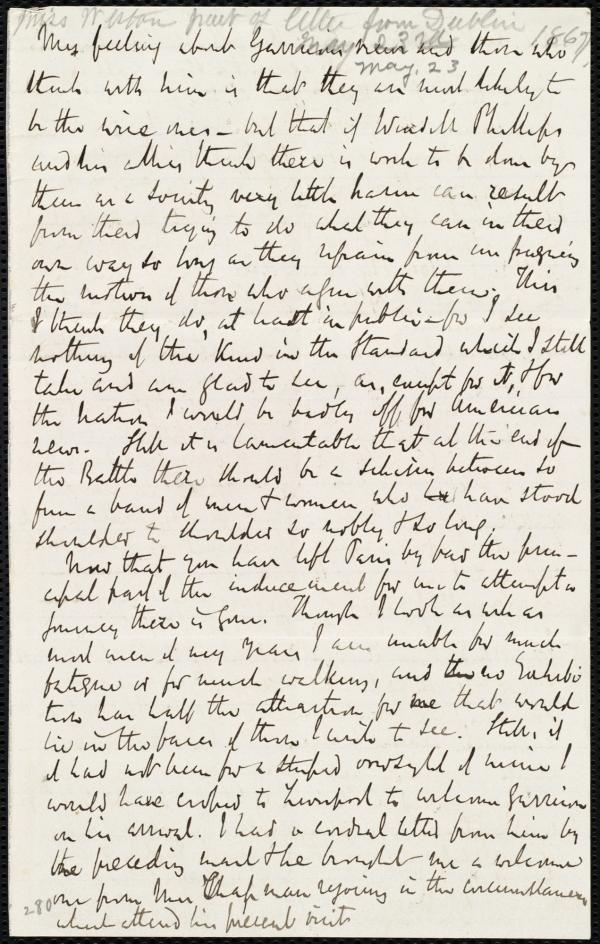 Miss Weston part of letter from Dublin
May 23 1867
May, 23
My feeling about Garrison's views and those who
think with him is that they are most likely to
be the wise ones - but that if Wendell Phillips
and his allies think there is work to be done by
them as a society very little harm can result
from their trying to do what they can in their
own way so long as they refrain from impugning
the motives of those who agree with them. This
I think they do, at least in public - for I see
nothing of the kind in the Standard which I still
take and am glad to see, as, except for it, & for
the Nation I would be badly off for American
news. Still it is lamentable that at the end of
the Battle there should be a schism between so
firm a band of men & women who have stood
shoulder to shoulder so nobly & so long.
Now that you have left Paris by far the prin-
cipal part of the inducement for me to attempt a
journey there is gone. Though I look as well as
most men of my years I am unable for much
fatigue or for much walking, and no Exhibi
tion has half the attraction for me that would
lie in the faces of those I wish to see. Still, if
it had not been for a stupid oversight of mine I
would have crossed to Liverpool to welcome Garrison
on his arrival. I had a cordial letter from him by
the preceding mail & he brought me a welcome
one from Mrs Chapman rejoicing in the circumstances
which attend his present visit
280